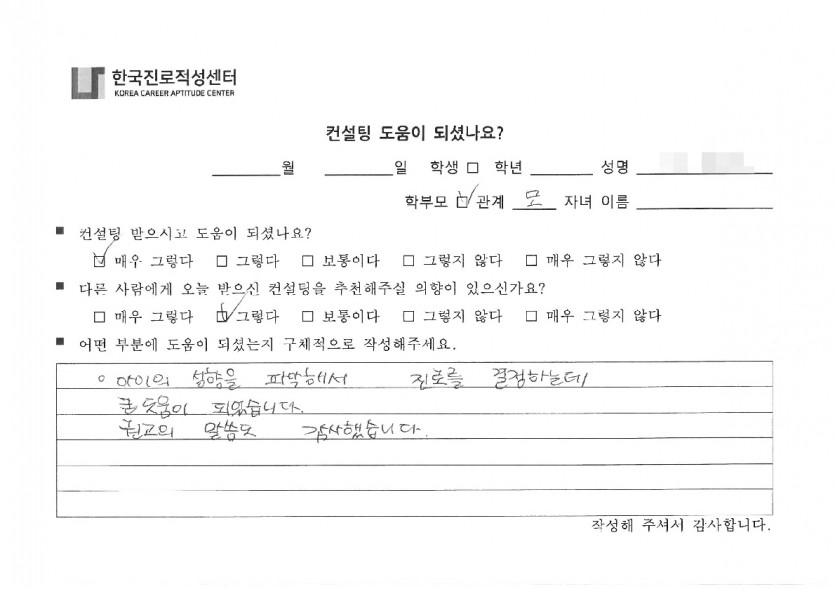 한국진로적성센터
KOREA CAREER APTITUDE CENTER
컨설팅 도움이 되셨나요?
______월 ______일 학생 □ 학년 ______ 성명 ____________
학부모 ☑ 관계 모 자녀 이름 ____________
■ 컨설팅 받으시고 도움이 되셨나요?
☑ 매우 그렇다 □ 그렇다 □ 보통이다 □ 그렇지 않다 □ 매우 그렇지 않다
■ 다른 사람에게 오늘 받으신 컨설팅을 추천해주실 의향이 있으신가요?
□ 매우 그렇다 ☑ 그렇다 □ 보통이다 □ 그렇지 않다 □ 매우 그렇지 않다
■ 어떤 부분에 도움이 되셨는지 구체적으로 작성해주세요.
○ 아이의 성향을 파악해서 진로를 결정하는데
큰 도움이 되었습니다.
말씀도 감사했습니다.
작성해 주셔서 감사합니다.